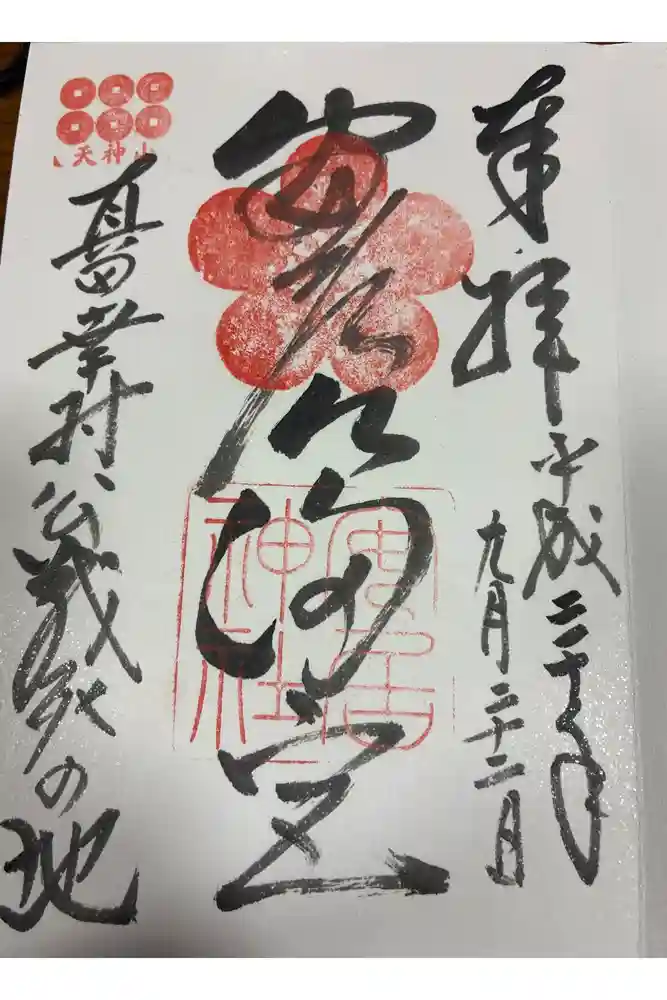 奉拝
平成二十年
九月二十二日
安居天満宮
安居
神社
天神山
真田幸村公戦死の地